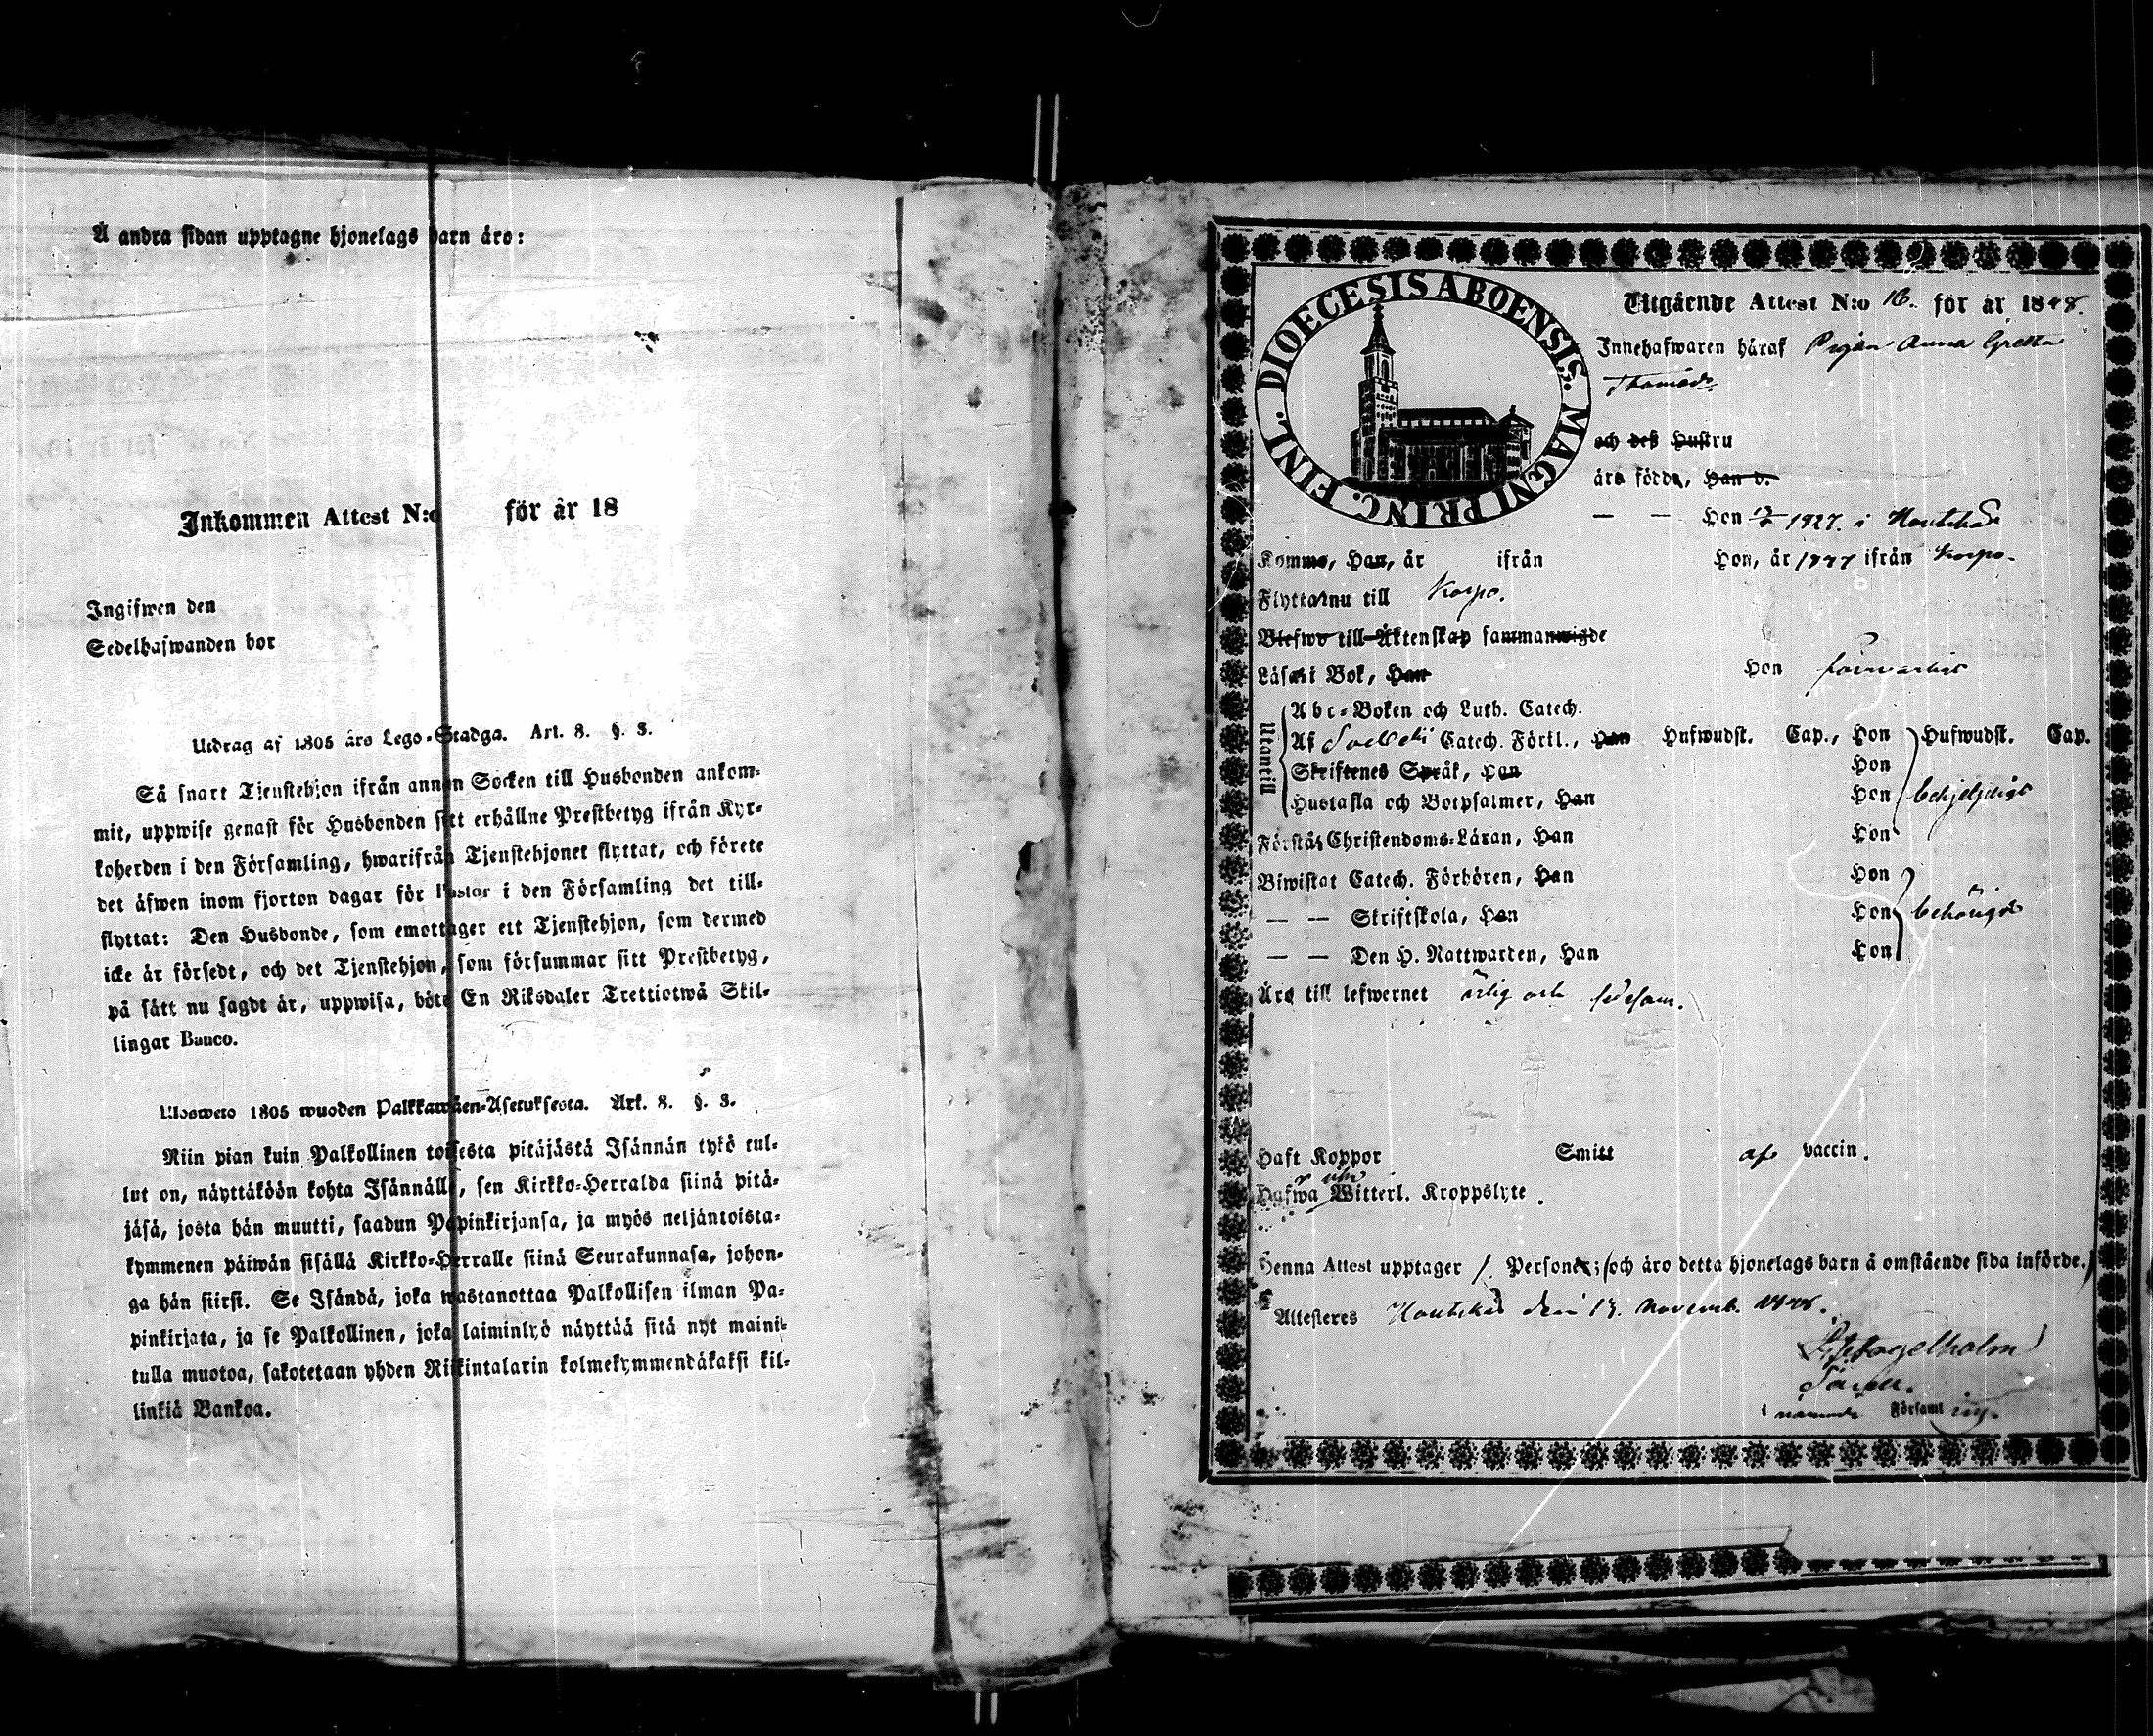 Å andra sidan upptagne hjonelags barn äro:
Inkommen Attest N:o för år 18
Ingifwen den
Sedelhafwanden bor
Utdrag af 1805 års Lego-Stadga. Art. 8. §. 3.
Så snart Tjenstehjon ifrån annan Socken till Husbonden ankom-
mit, uppwise genast för Husbonden sitt erhållne Prestbetyg ifrån Kyr-
koherden i den Församling, hwarifrån Tjenstehjonet flyttat, och förete
det äfwen inom fjorton dagar för Pastor i den Församling det till-
flyttat: Den Husbonde, som emottager ett Tjenstehjon, som dermed
icke är försedt, och det Tjenstehjon, som försummar sitt Prestbetyg,
på sätt nu sagdt är, uppwisa, böte En Riksdaler Trettiotwå Skil-
lingar Banco.
Ulosweto 1805 wuoden Palkkawäen-Asetuksesta. Art. 8. §. 3.
Niin pian kuin Palkollinen toisesta pitäjästä Isännän tykö tul-
lut on, näyttäköön kohta Isännälle, sen Kirkko-Herralda siinä pitä-
jäsä, josta hän muutti, saadun Papinkirjansa, ja myös neljäntoista-
kymmenen päiwän sisällä Kirkko-Herralle siinä Seurakunnasa, johon-
ga hän siirst. Se Isändä, joka wastanottaa Palkollisen ilman Pa-
pinkirjata, ja se Palkollinen, joka laiminlyö näyttää sitä nyt maini-
tulla muotoa, sakotetaan yhden Riikintalarin kolmekymmendäkaksi kil-
linkiä Bankoa.
DIOECESIS ABOENSIS. MAGNI PRINC. FINL.
Utgående Attest N:o 16. för år 1848.
Innehafwaren häraf Pigan Anna Greta
Thomasdr
och deß Hustru
äro födde, Han d.
— — Hon 1827. i Houtskär
Komme, Han, år ifrån Hon, år 1847 ifrån Korpo.
Flytta nu till Korpo.
Blefwo till Äktenskap sammanwigde
Läsa i Bok, Han Hon försvarligt
Utantill
Abc-Boken och Luth. Catech.
Af Svebelii Catech. Förkl., Han Hufwudst. Cap., Hon Hufwudst. Cap.
Skriftenes Språk, Han Hon
Hustafla och Botpsalmer, Han Hon behjelpligt
Förstår Christendoms-Läran, Han Hon
Biwistat Catech. Förhören, Han Hon
— — Skriftskola, Han Hon behörigt
— — Den H. Nattwarden, Han Hon
Äro till lefwernet ärlig och sedesam.
Haft Koppor Smitt af vaccin.
utan
Hafwa Witterl. Kroppslyte.
Denna Attest upptager 1. Personer; (och äro detta hjonelags barn å omstående sida införde.)
Attesteres Houtskär den 13. Novemb. 1848.
Fogelholm
i nämnde Församling.